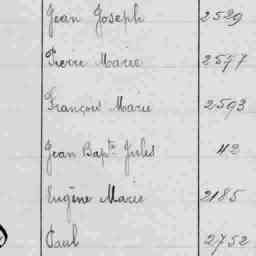 Jean Joseph 2529
Pierre Marie 2577
François Marie 2593
Jean Bapte Jules 42
Eugène Marie 2185
Paul 2752